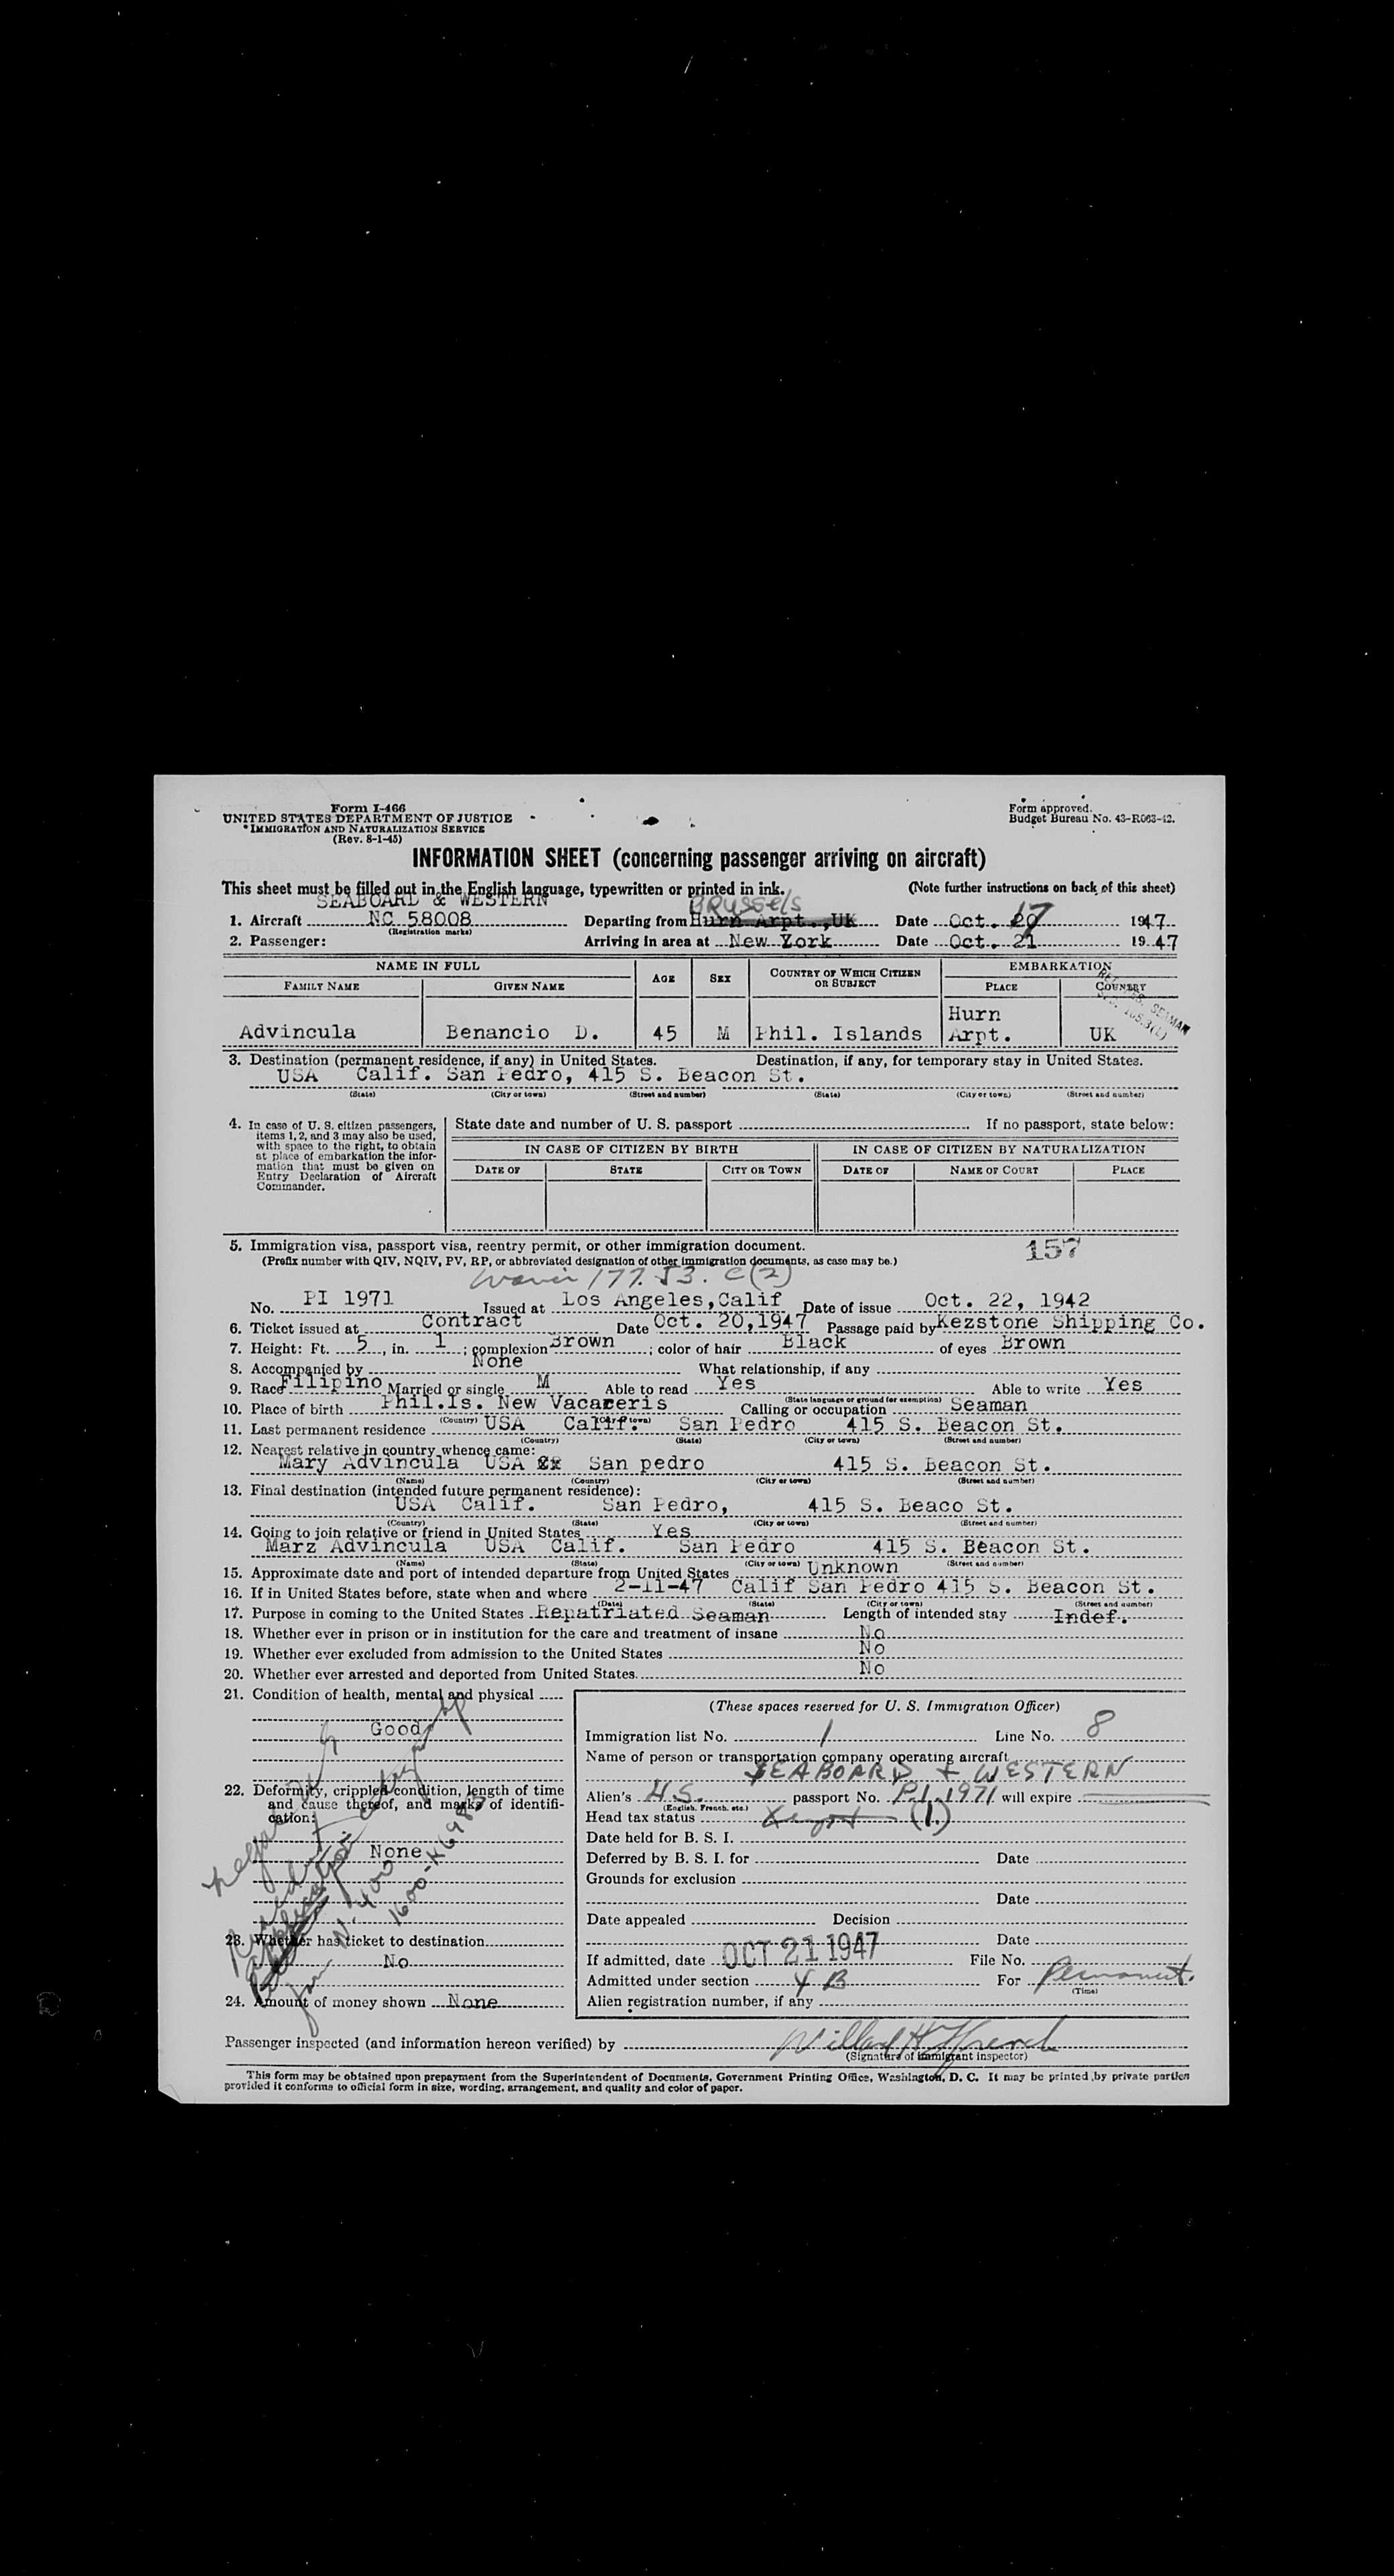 Form I-466
UNITED STATES DEPARTMENT OF JUSTICE
IMMIGRATION AND NATURALIZATION SERVICE
(Rev. 8-1-45)
Form approved.
Budget Bureau No. 43-R063-42.
INFORMATION SHEET (concerning passenger arriving on aircraft)
This sheet must be filled out in the English language, typewritten or printed in ink. (Note further instructions on back of this sheet)
SEABOARD & WESTERN Brussels
1. Aircraft NC 58008 Departing from Hurn Arpt., UK Date Oct. 20 17 1947
(Registration marks)
2. Passenger: Arriving in area at New York Date Oct. 21 1947
NAME IN FULL AGE SEX COUNTRY OF WHICH CITIZEN OR SUBJECT EMBARKATION
FAMILY NAME GIVEN NAME PLACE COUNTRY
Advincula Benancio D. 45 M Phil. Islands Hurn Arpt. UK
SEAMAN
3. Destination (permanent residence, if any) in United States. Destination, if any, for temporary stay in United States.
USA Calif. San Pedro, 415 S. Beacon St.
(State) (City or town) (Street and number) (State) (City or town) (Street and number)
4. In case of U. S. citizen passengers, items 1, 2, and 3 may also be used, with space to the right, to obtain at place of embarkation the information that must be given on Entry Declaration of Aircraft Commander.
State date and number of U. S. passport If no passport, state below:
IN CASE OF CITIZEN BY BIRTH IN CASE OF CITIZEN BY NATURALIZATION
DATE OF STATE CITY OR TOWN DATE OF NAME OF COURT PLACE
5. Immigration visa, passport visa, reentry permit, or other immigration document. 157
(Prefix number with QIV, NQIV, PV, RP, or abbreviated designation of other immigration documents, as case may be.)
Waiver 177.53. C(2)
No. PI 1971 Issued at Los Angeles, Calif Date of issue Oct. 22, 1942
6. Ticket issued at Contract Date Oct. 20, 1947 Passage paid by Kezstone Shipping Co.
7. Height: Ft. 5, in. 1; complexion Brown; color of hair Black of eyes Brown
8. Accompanied by None What relationship, if any
9. Race Filipino Married or single M Able to read Yes Able to write Yes
(State language or ground for exemption)
10. Place of birth Phil.Is. New Vacareris Calling or occupation Seaman
(Country) (City or town)
11. Last permanent residence USA Calif. San Pedro 415 S. Beacon St.
(Country) (State) (City or town) (Street and number)
12. Nearest relative in country whence came:
Mary Advincula USA San pedro 415 S. Beacon St.
(Name) (Country) (City or town) (Street and number)
13. Final destination (intended future permanent residence):
USA Calif. San Pedro, 415 S. Beaco St.
(Country) (State) (City or town) (Street and number)
14. Going to join relative or friend in United States Yes
Marz Advincula USA Calif. San Pedro 415 S. Beacon St.
(Name) (State) (City or town) (Street and number)
15. Approximate date and port of intended departure from United States Unknown
16. If in United States before, state when and where 2-11-47 Calif San Pedro 415 S. Beacon St.
(Date) (State) (City or town) (Street and number)
17. Purpose in coming to the United States Repatriated Seaman Length of intended stay Indef.
18. Whether ever in prison or in institution for the care and treatment of insane No
19. Whether ever excluded from admission to the United States No
20. Whether ever arrested and deported from United States. No
21. Condition of health, mental and physical
Good
22. Deformity, crippled condition, length of time and cause thereof, and marks of identification:
None
23. Whether has ticket to destination
No
24. Amount of money shown None
(These spaces reserved for U. S. Immigration Officer)
Immigration list No. 1 Line No. 8
Name of person or transportation company operating aircraft
SEABOARD & WESTERN
Alien's U.S. passport No. P.I. 1971 will expire
(English, French, etc.)
Head tax status (1.)
Date held for B. S. I.
Deferred by B. S. I. for Date
Grounds for exclusion
Date
Date appealed Decision
Date
If admitted, date OCT 21 1947 File No.
Admitted under section 4 B For Permanent.
(Time)
Alien registration number, if any
Passenger inspected (and information hereon verified) by Willard H. French
(Signature of immigrant inspector)
This form may be obtained upon prepayment from the Superintendent of Documents, Government Printing Office, Washington, D. C. It may be printed by private parties
provided it conforms to official form in size, wording, arrangement, and quality and color of paper.